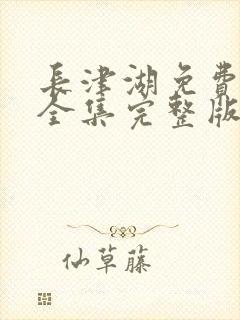 長津湖免費
全集完整版
仙草藤